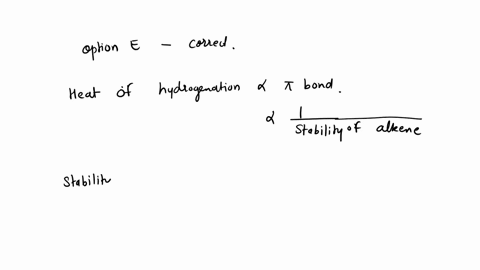 option E - corred.
Heat of hydrogenation α π bond.
α 1
Stability of alkene
Stability